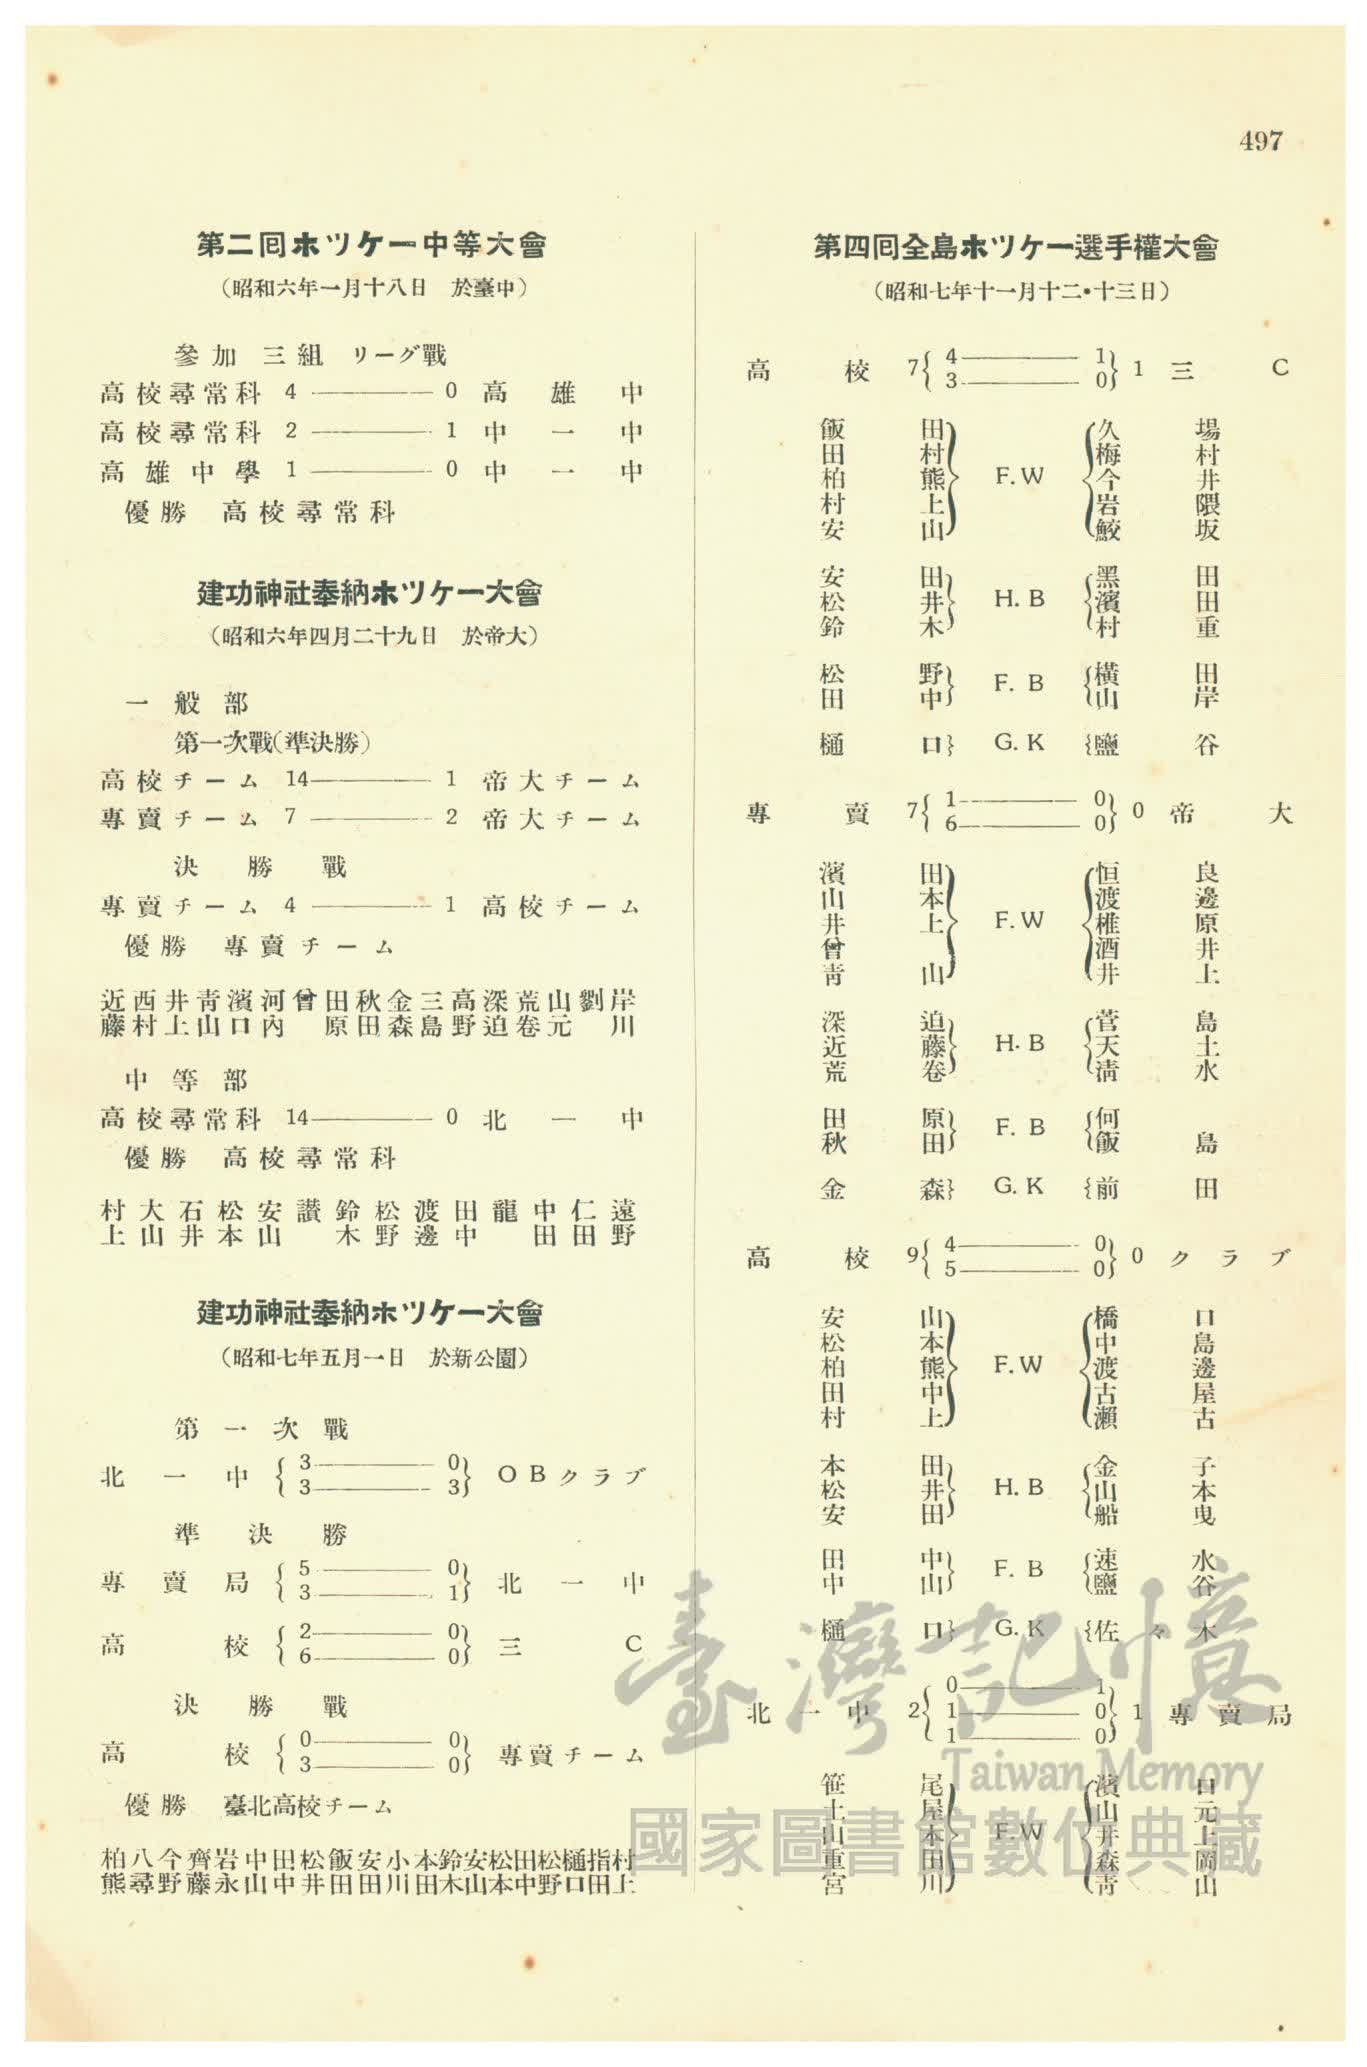 497
第二囘ホツケー中等大會
（昭和六年一月十八日　於臺中）
參加 三組 リーグ戰
高校尋常科 4 ——— 0 高雄中
高校尋常科 2 ——— 1 中一中
高雄中學 1 ——— 0 中一中
優勝　高校尋常科
建功神社奉納ホツケー大會
（昭和六年四月二十九日　於帝大）
一般部
第一次戰（準決勝）
高校チーム 14 ——— 1 帝大チーム
專賣チーム 7 ——— 2 帝大チーム
決勝戰
專賣チーム 4 ——— 1 高校チーム
優勝　專賣チーム
近西井靑濱河曾田秋金三高深荒山劉岸
藤村上山口內　原田森島野迫卷元　川
中等部
高校尋常科 14 ——— 0 北一中
優勝　高校尋常科
村大石松安讃鈴松渡田龍中仁遠
上山井本山　木野邊中　田田野
建功神社奉納ホツケー大會
（昭和七年五月一日　於新公園）
第一次戰
北一中 { 3 ——— 0 } OBクラブ
{ 3 ——— 3 }
準決勝
專賣局 { 5 ——— 0 } 北一中
{ 3 ——— 1 }
高校 { 2 ——— 0 } 三C
{ 6 ——— 0 }
決勝戰
高校 { 0 ——— 0 } 專賣チーム
{ 3 ——— 0 }
優勝　臺北高校チーム
柏八今齊岩中田松飯安小本鈴安松田松樋指村
熊尋野藤永山中井田田川田木山本中野口田上
第四囘全島ホツケー選手權大會
（昭和七年十一月十二・十三日）
高校 7 { 4 ——— 1 } 1 三C
{ 3 ——— 0 }
飯田　久場
田村　梅村
柏熊 F.W 今井
村上　岩隈
安山　鮫坂
安田　黑田
松井 H.B 濱田
鈴木　村重
松野 F.B 橫田
田中　山岸
樋口 G.K 鹽谷
專賣 7 { 1 ——— 0 } 0 帝大
{ 6 ——— 0 }
濱田　恒良
山本　渡邊
井上 F.W 椎原
曾　酒井
靑山　井上
深迫　菅島
近藤 H.B 天土
荒卷　淸水
田原 F.B 何
秋田　飯島
金森 G.K 前田
高校 9 { 4 ——— 0 } 0 クラブ
{ 5 ——— 0 }
安山　橋口
松本　中島
柏熊 F.W 渡邊
田中　古屋
村上　瀨古
本田　金子
松井 H.B 山本
安田　船曳
田中 F.B 速水
中山　鹽谷
樋口 G.K 佐々木
北一中 2 { 0 ——— 1 } 1 專賣局
{ 1 ——— 0 }
{ 1 ——— 0 }
笹尾　濱口
土屋　山元
山本 F.W 井上
重田　森岡
宮川　靑山
臺灣記憶
Taiwan Memory
國家圖書館數位典藏